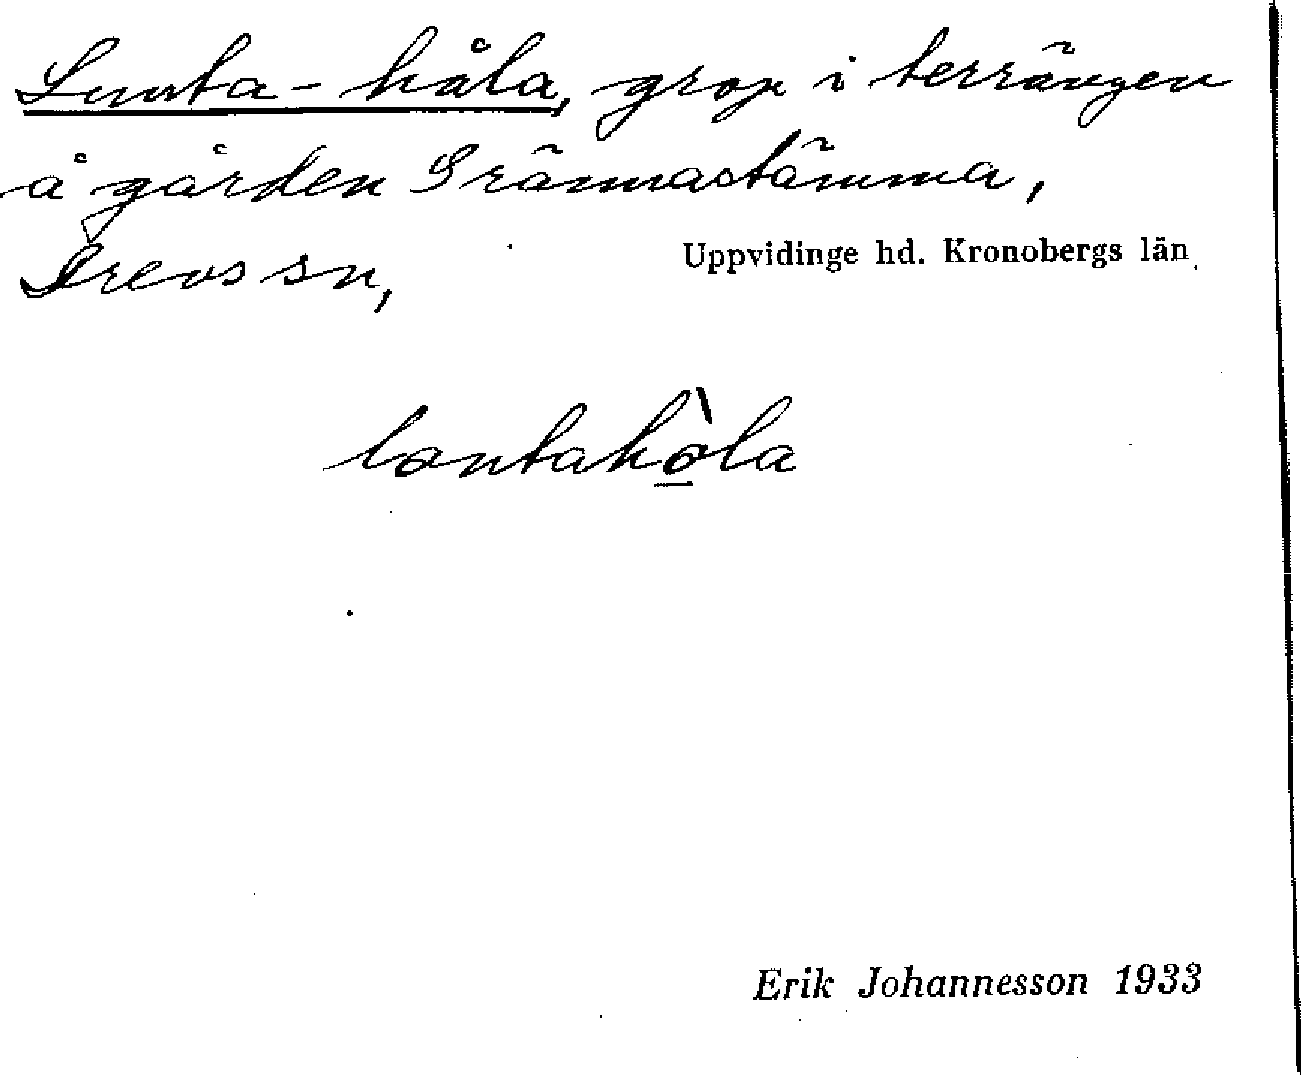 Lunta-håla, grop i terrängen
å gården Grännastämma,
Drevs sn, Uppvidinge hd. Kronobergs län
lontahòla
Erik Johannesson 1933